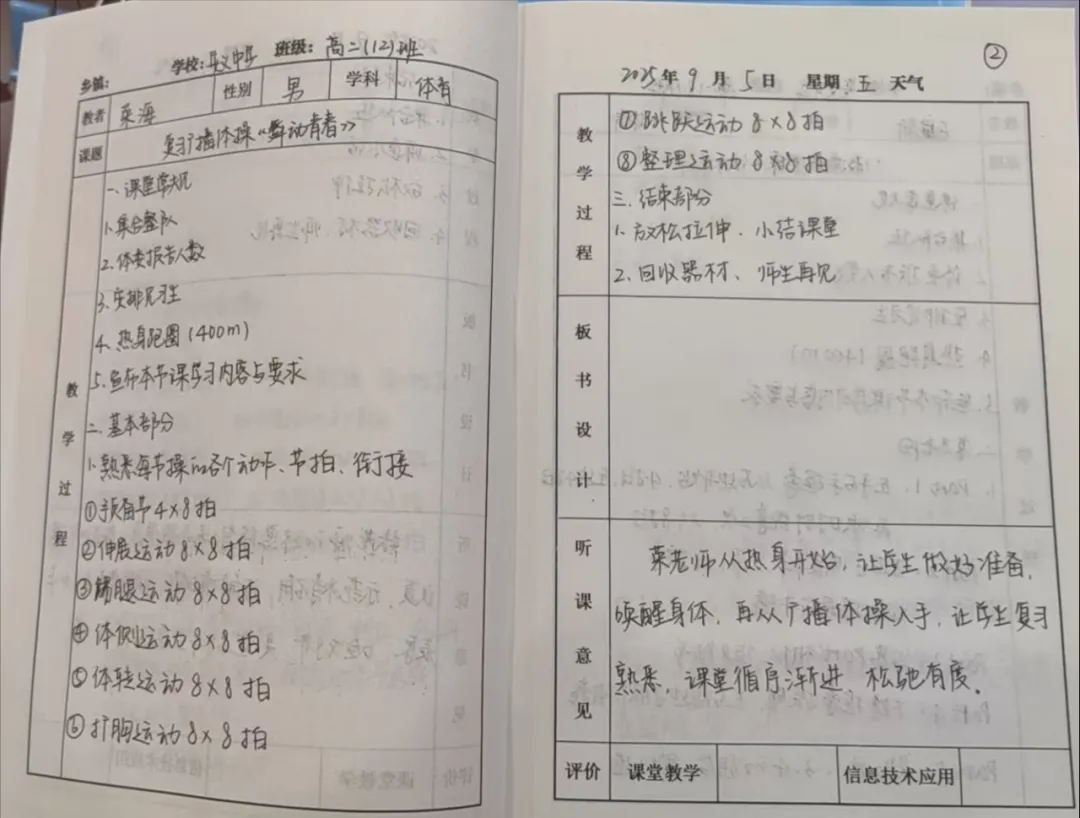 乡镇: 学校: 班级: 高二(12)班
教者 菜海 性别 男 学科 体育
课题 复习广播体操《舞动青春》
教学过程
一、课堂常规
1.集合整队
2.体委报告人数
3.安排见习生
4.热身跑圈(400m)
5.宣布本节课学习内容与要求
二.基本部分
1.熟悉每节操的各个动作、节拍、衔接
①预备节4×8拍
②伸展运动8×8拍
③踢腿运动8×8拍
④体侧运动8×8拍
⑤体转运动8×8拍
⑥扩胸运动8×8拍
②
2025年9月5日 星期五 天气
教学过程
⑦跳跃运动8×8拍
⑧整理运动8×8拍
三.结束部分
1.放松拉伸、小结课堂
2.回收器材、师生再见
板书设计
听课意见
菜老师从热身开始,让学生做好准备,
唤醒身体,再从广播体操入手,让学生复习
熟悉,课堂循序渐进 松驰有度.
评价 课堂教学 信息技术应用